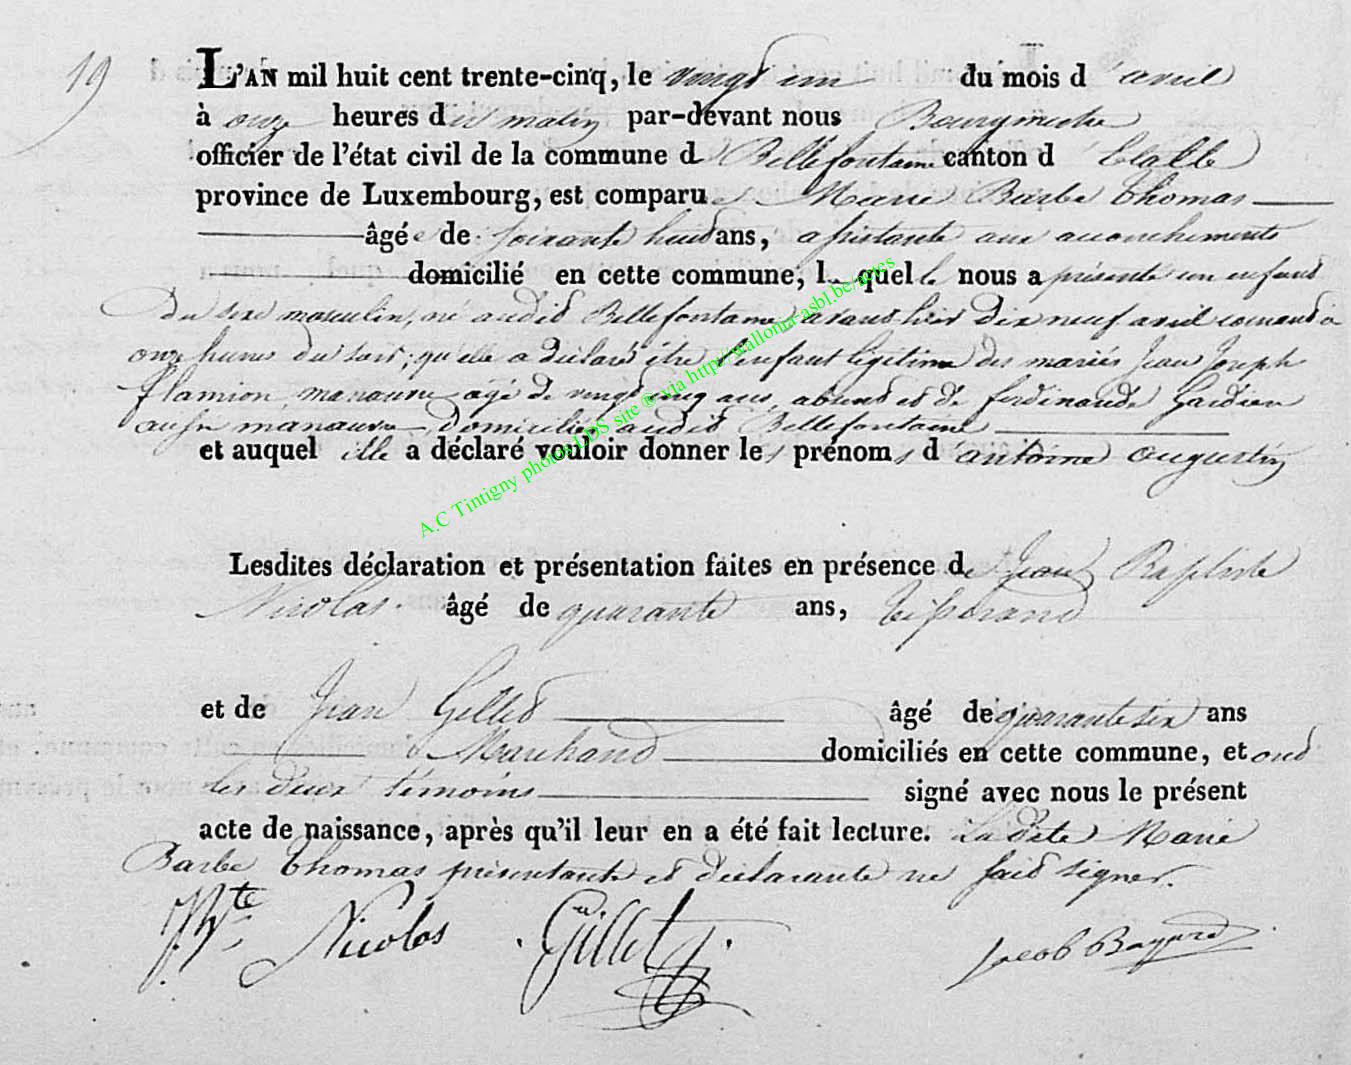 19
L'AN mil huit cent trente-cinq, le vingt un du mois d'avril
à onze heures du matin par-devant nous Bourgmestre
officier de l'état civil de la commune de Bellefontaine canton d'Etalle
province de Luxembourg, est comparue Marie Barbe Thomas
âgée de soixante huit ans, assistante aux acouchements
domicilié en cette commune, laquelle nous a présenté un enfant
du sexe masculin, né audit Bellefontaine avant hier dix neuf avril courant à
onze heures du soir; qu'elle a déclaré être l'enfant légitime des mariés Jean Joseph
Flamion, manœuvre agé de vingt cinq ans, absent et de Ferdinande Gardien
aussi manœuvre, domiciliés audit Bellefontaine
et auquel elle a déclaré vouloir donner les prénoms d'antoine augustin
Lesdites déclaration et présentation faites en présence de Jean Baptiste
Nicolas âgé de quarante ans, tisserand
et de Jean Gillet âgé de quarante six ans
Marchand domiciliés en cette commune, et ont
les deux témoins signé avec nous le présent
acte de naissance, après qu'il leur en a été fait lecture. La dite Marie
Barbe Thomas présentante et déclarante ne sait signer.
J. Bte Nicolas Gillet J. Jacob Bayard
A.C Tintigny photos LDS site ® via http://wallonia-asbl.be/actes